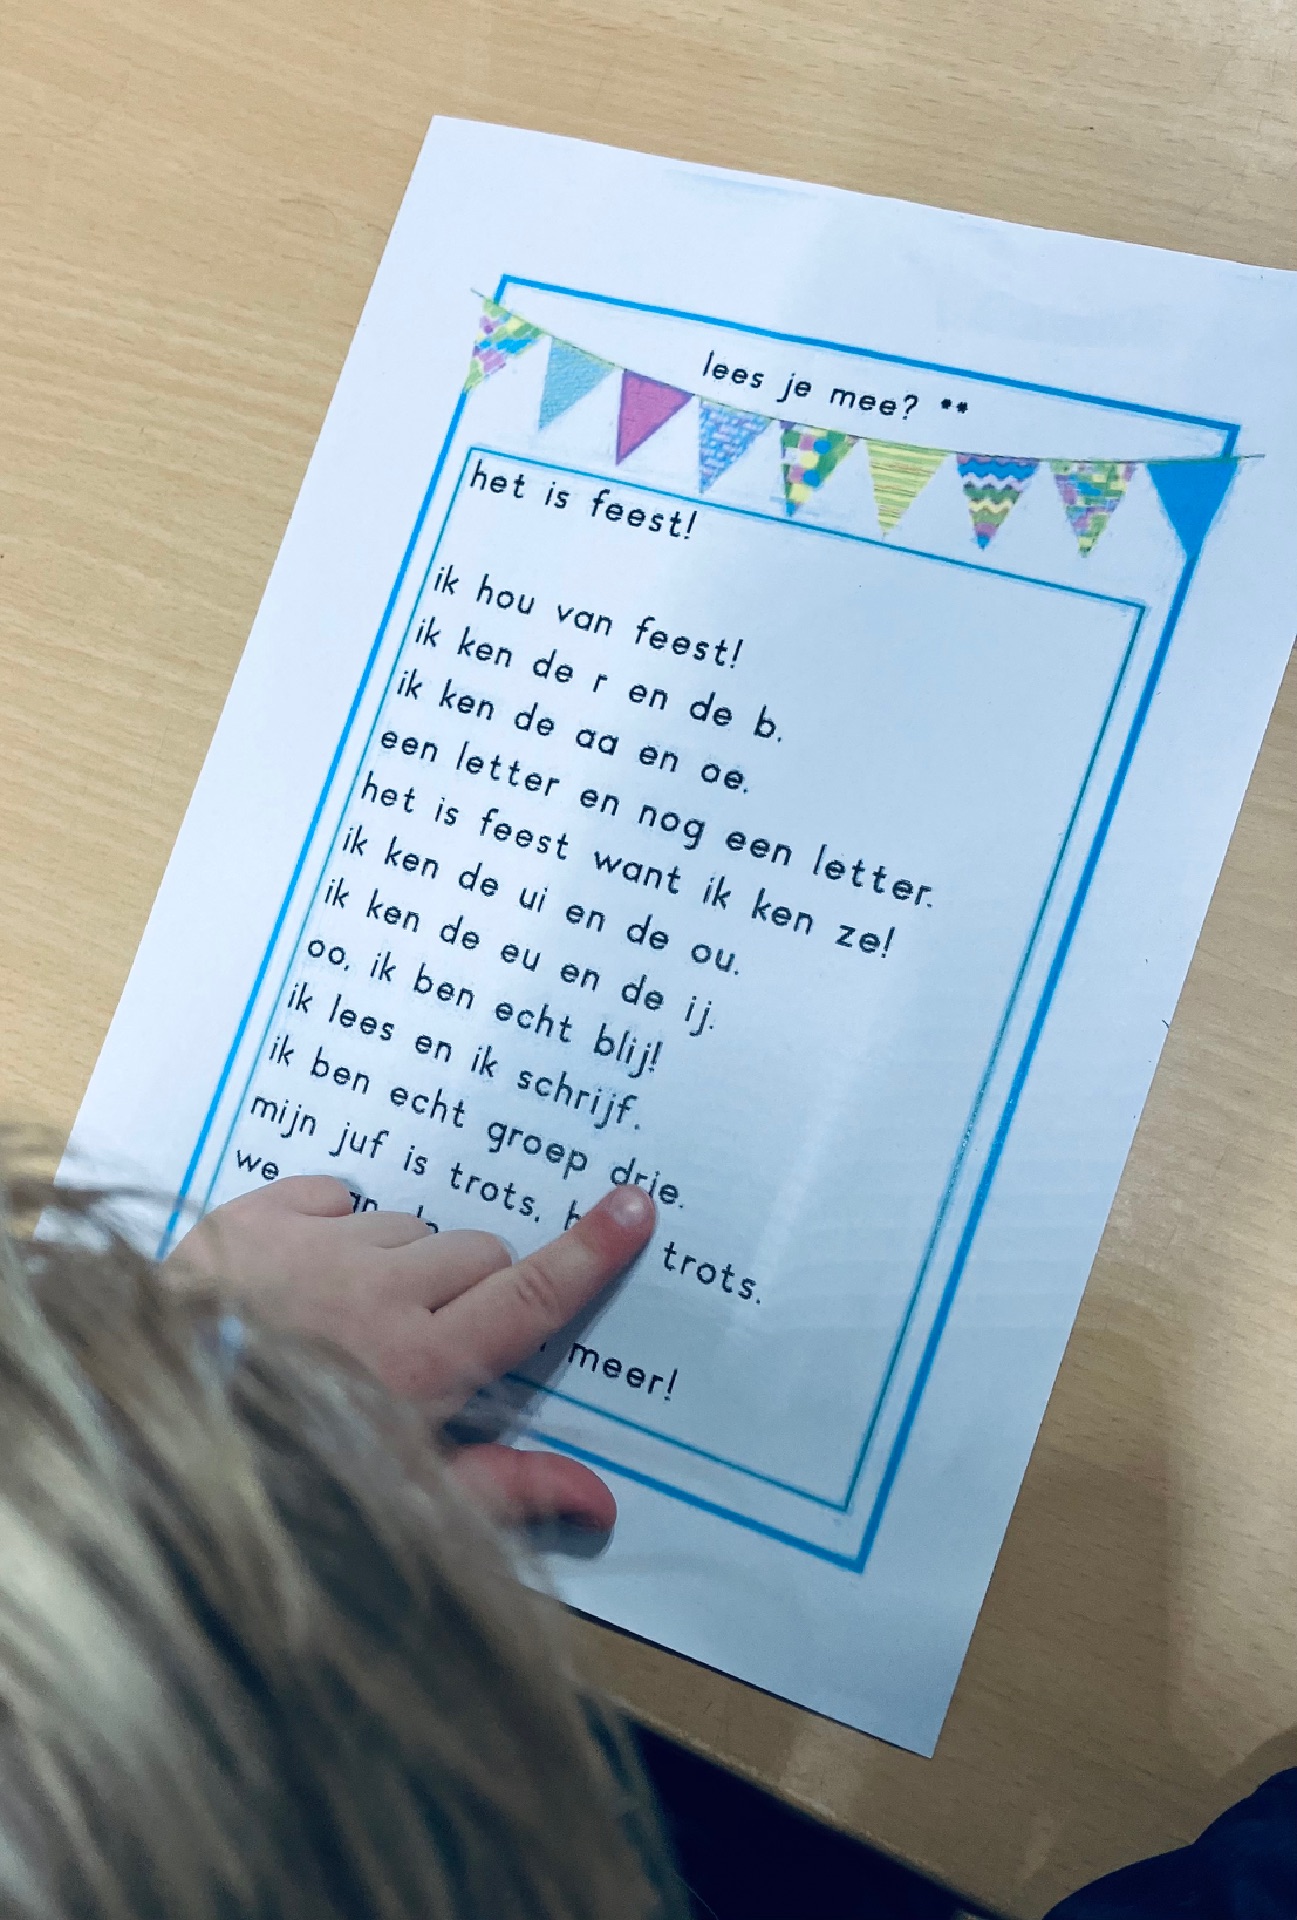 lees je mee? **
het is feest!
ik hou van feest!
ik ken de r en de b.
ik ken de aa en oe.
een letter en nog een letter.
het is feest want ik ken ze!
ik ken de ui en de ou.
ik ken de eu en de ij.
oo, ik ben echt blij!
ik lees en ik schrijf.
ik ben echt groep drie.
mijn juf is trots, trots.
we
meer!